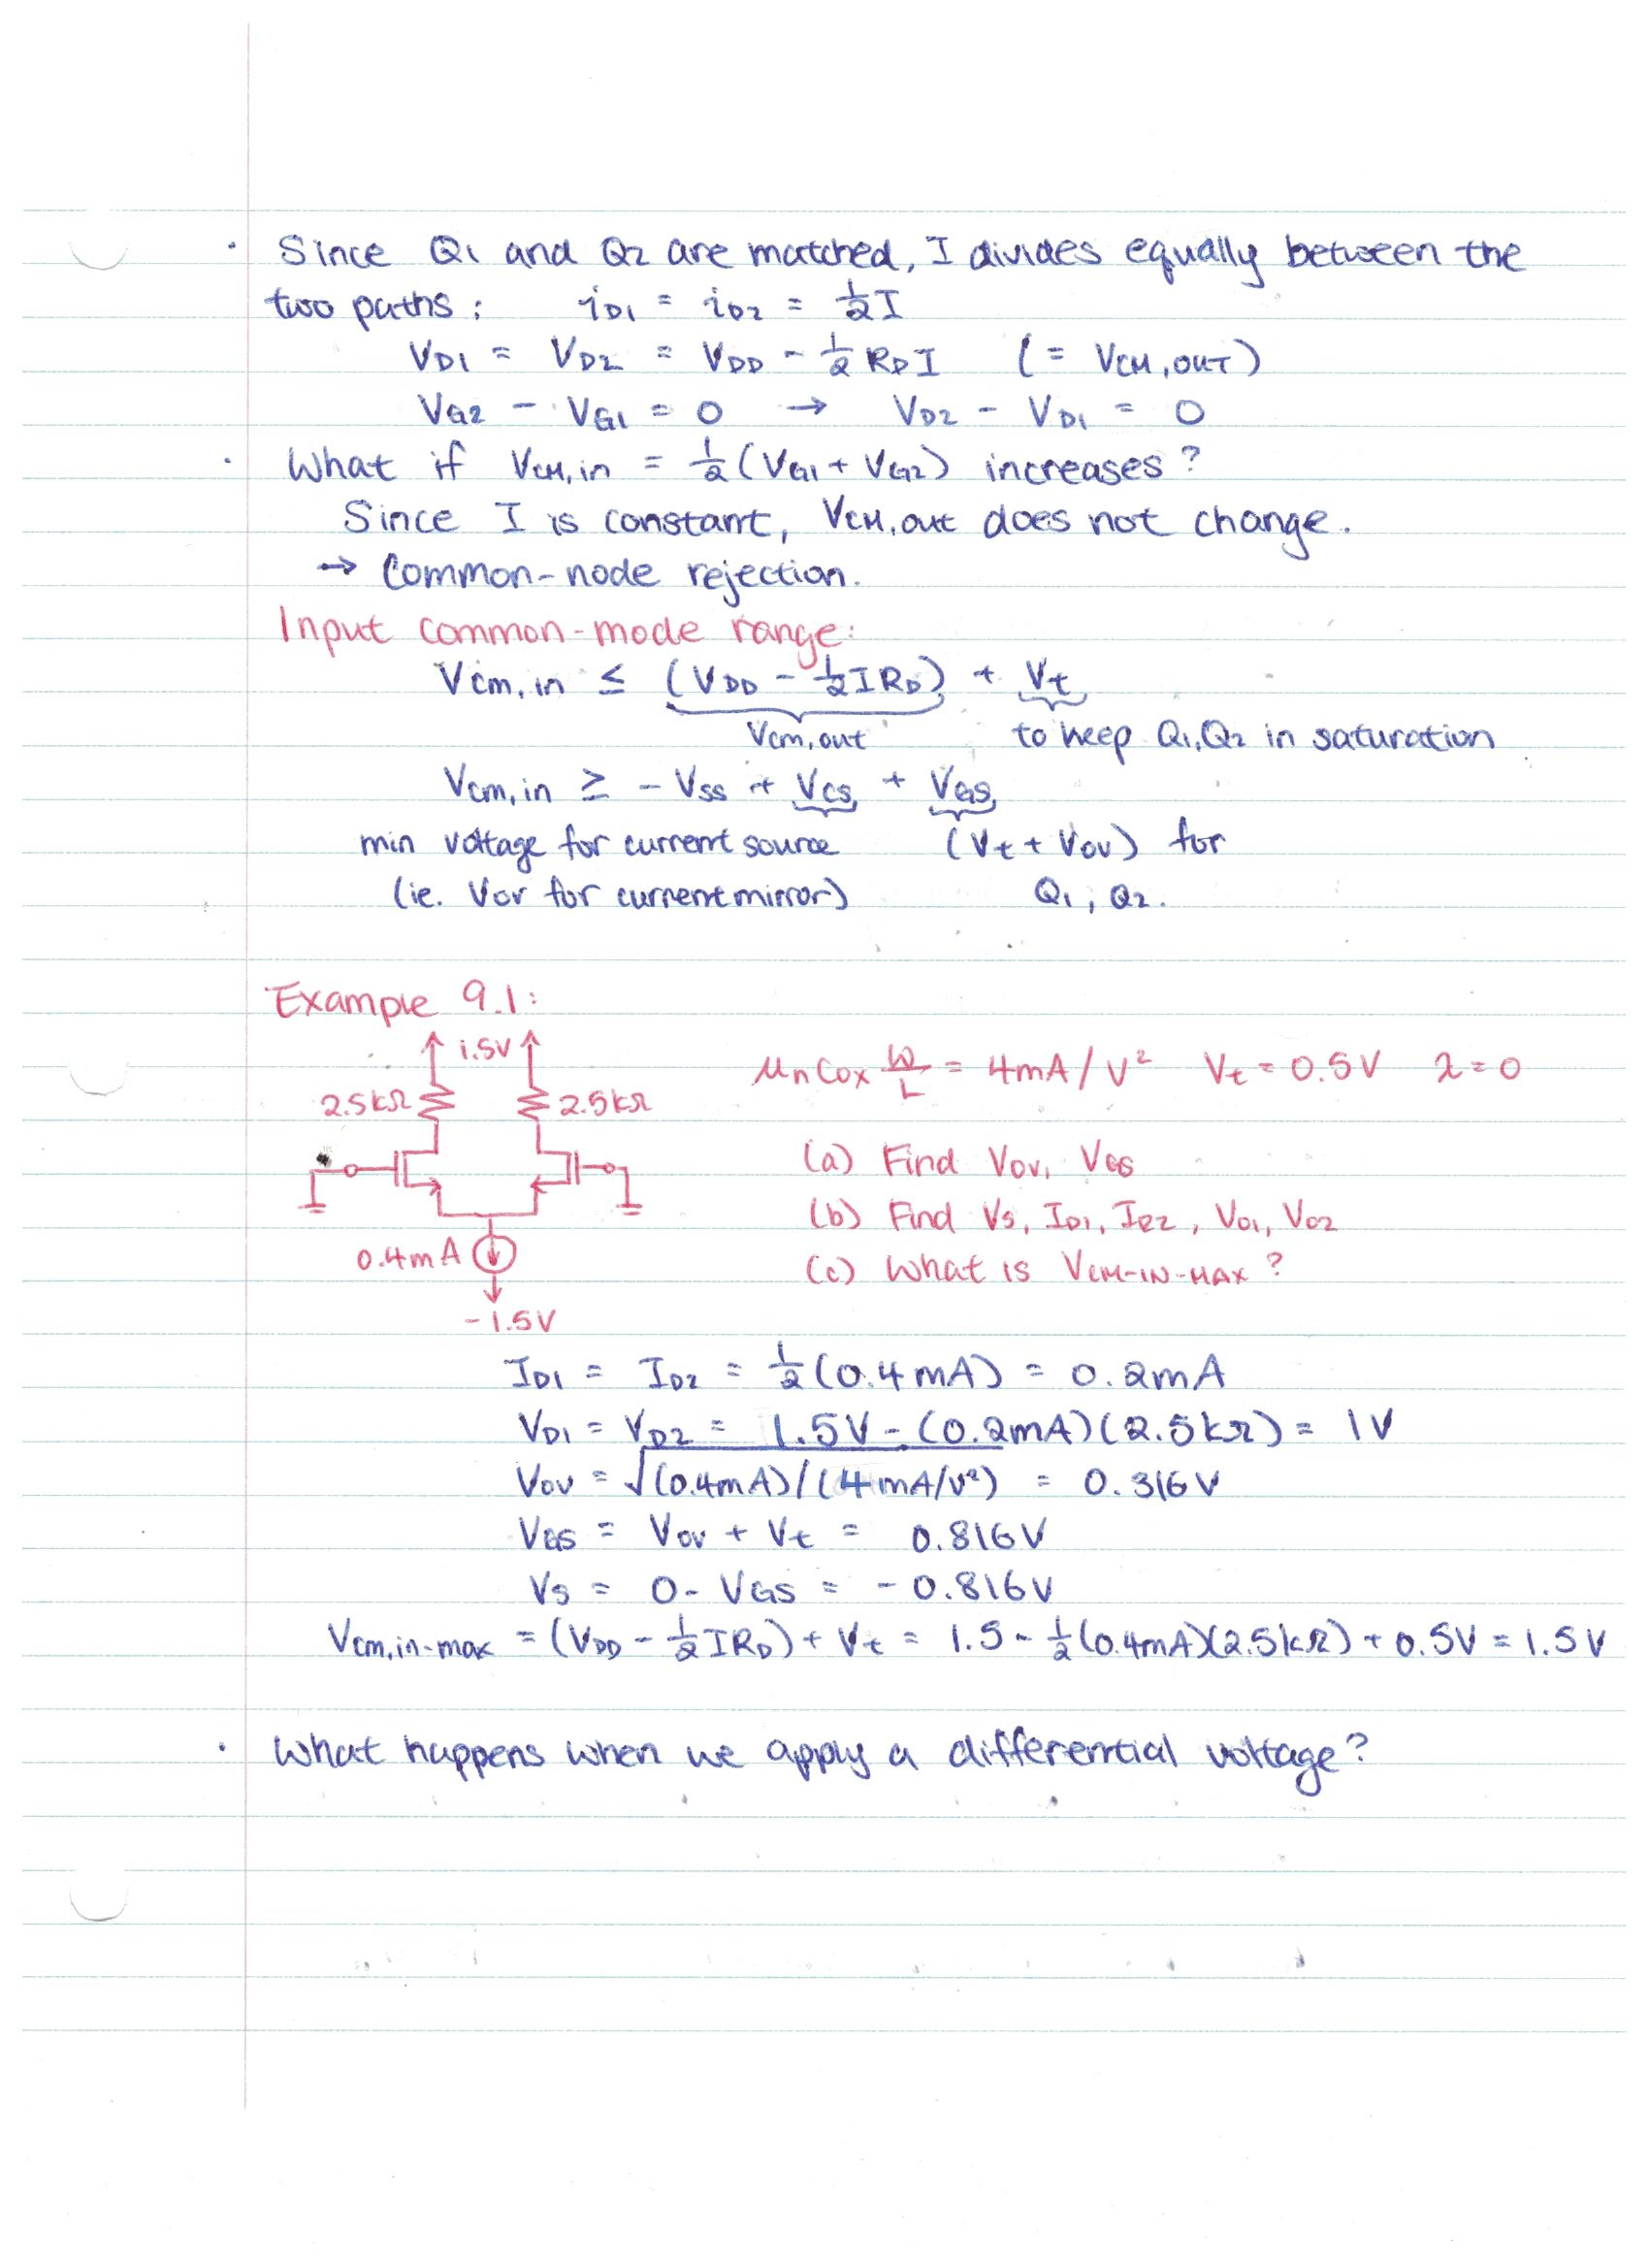 · Since Q1 and Q2 are matched, I divides equally between the
two paths: iD1 = iD2 = ½I
VD1 = VD2 = VDD - ½ RD I (= VCM,OUT)
VG2 - VG1 = 0 → VD2 - VD1 = 0
· What if VCM,in = ½(VG1 + VG2) increases?
Since I is constant, VCM,out does not change.
→ Common-node rejection.
Input common-mode range:
Vcm,in ≤ (VDD - ½IRD) + Vt
Vcm,out to keep Q1,Q2 in saturation
Vcm,in ≥ - Vss + Vcs + VGS
min voltage for current source (Vt + Vov) for
(ie. Vov for current mirror) Q1, Q2.
Example 9.1:
1.5V
μnCox W/L = 4mA/V² Vt = 0.5V λ=0
2.5kΩ 2.5kΩ
(a) Find Vov, VGS
(b) Find Vs, ID1, ID2, VO1, VO2
0.4mA
(c) What is VCM-IN-MAX?
-1.5V
ID1 = ID2 = ½(0.4mA) = 0.2mA
VD1 = VD2 = 1.5V - (0.2mA)(2.5kΩ) = 1V
Vov = √(0.4mA)/(4mA/V²) = 0.316V
VGS = Vov + Vt = 0.816V
Vs = 0 - VGS = -0.816V
Vcm,in-max = (VDD - ½IRD) + Vt = 1.5 - ½(0.4mA)(2.5kΩ) + 0.5V = 1.5V
· What happens when we apply a differential voltage?